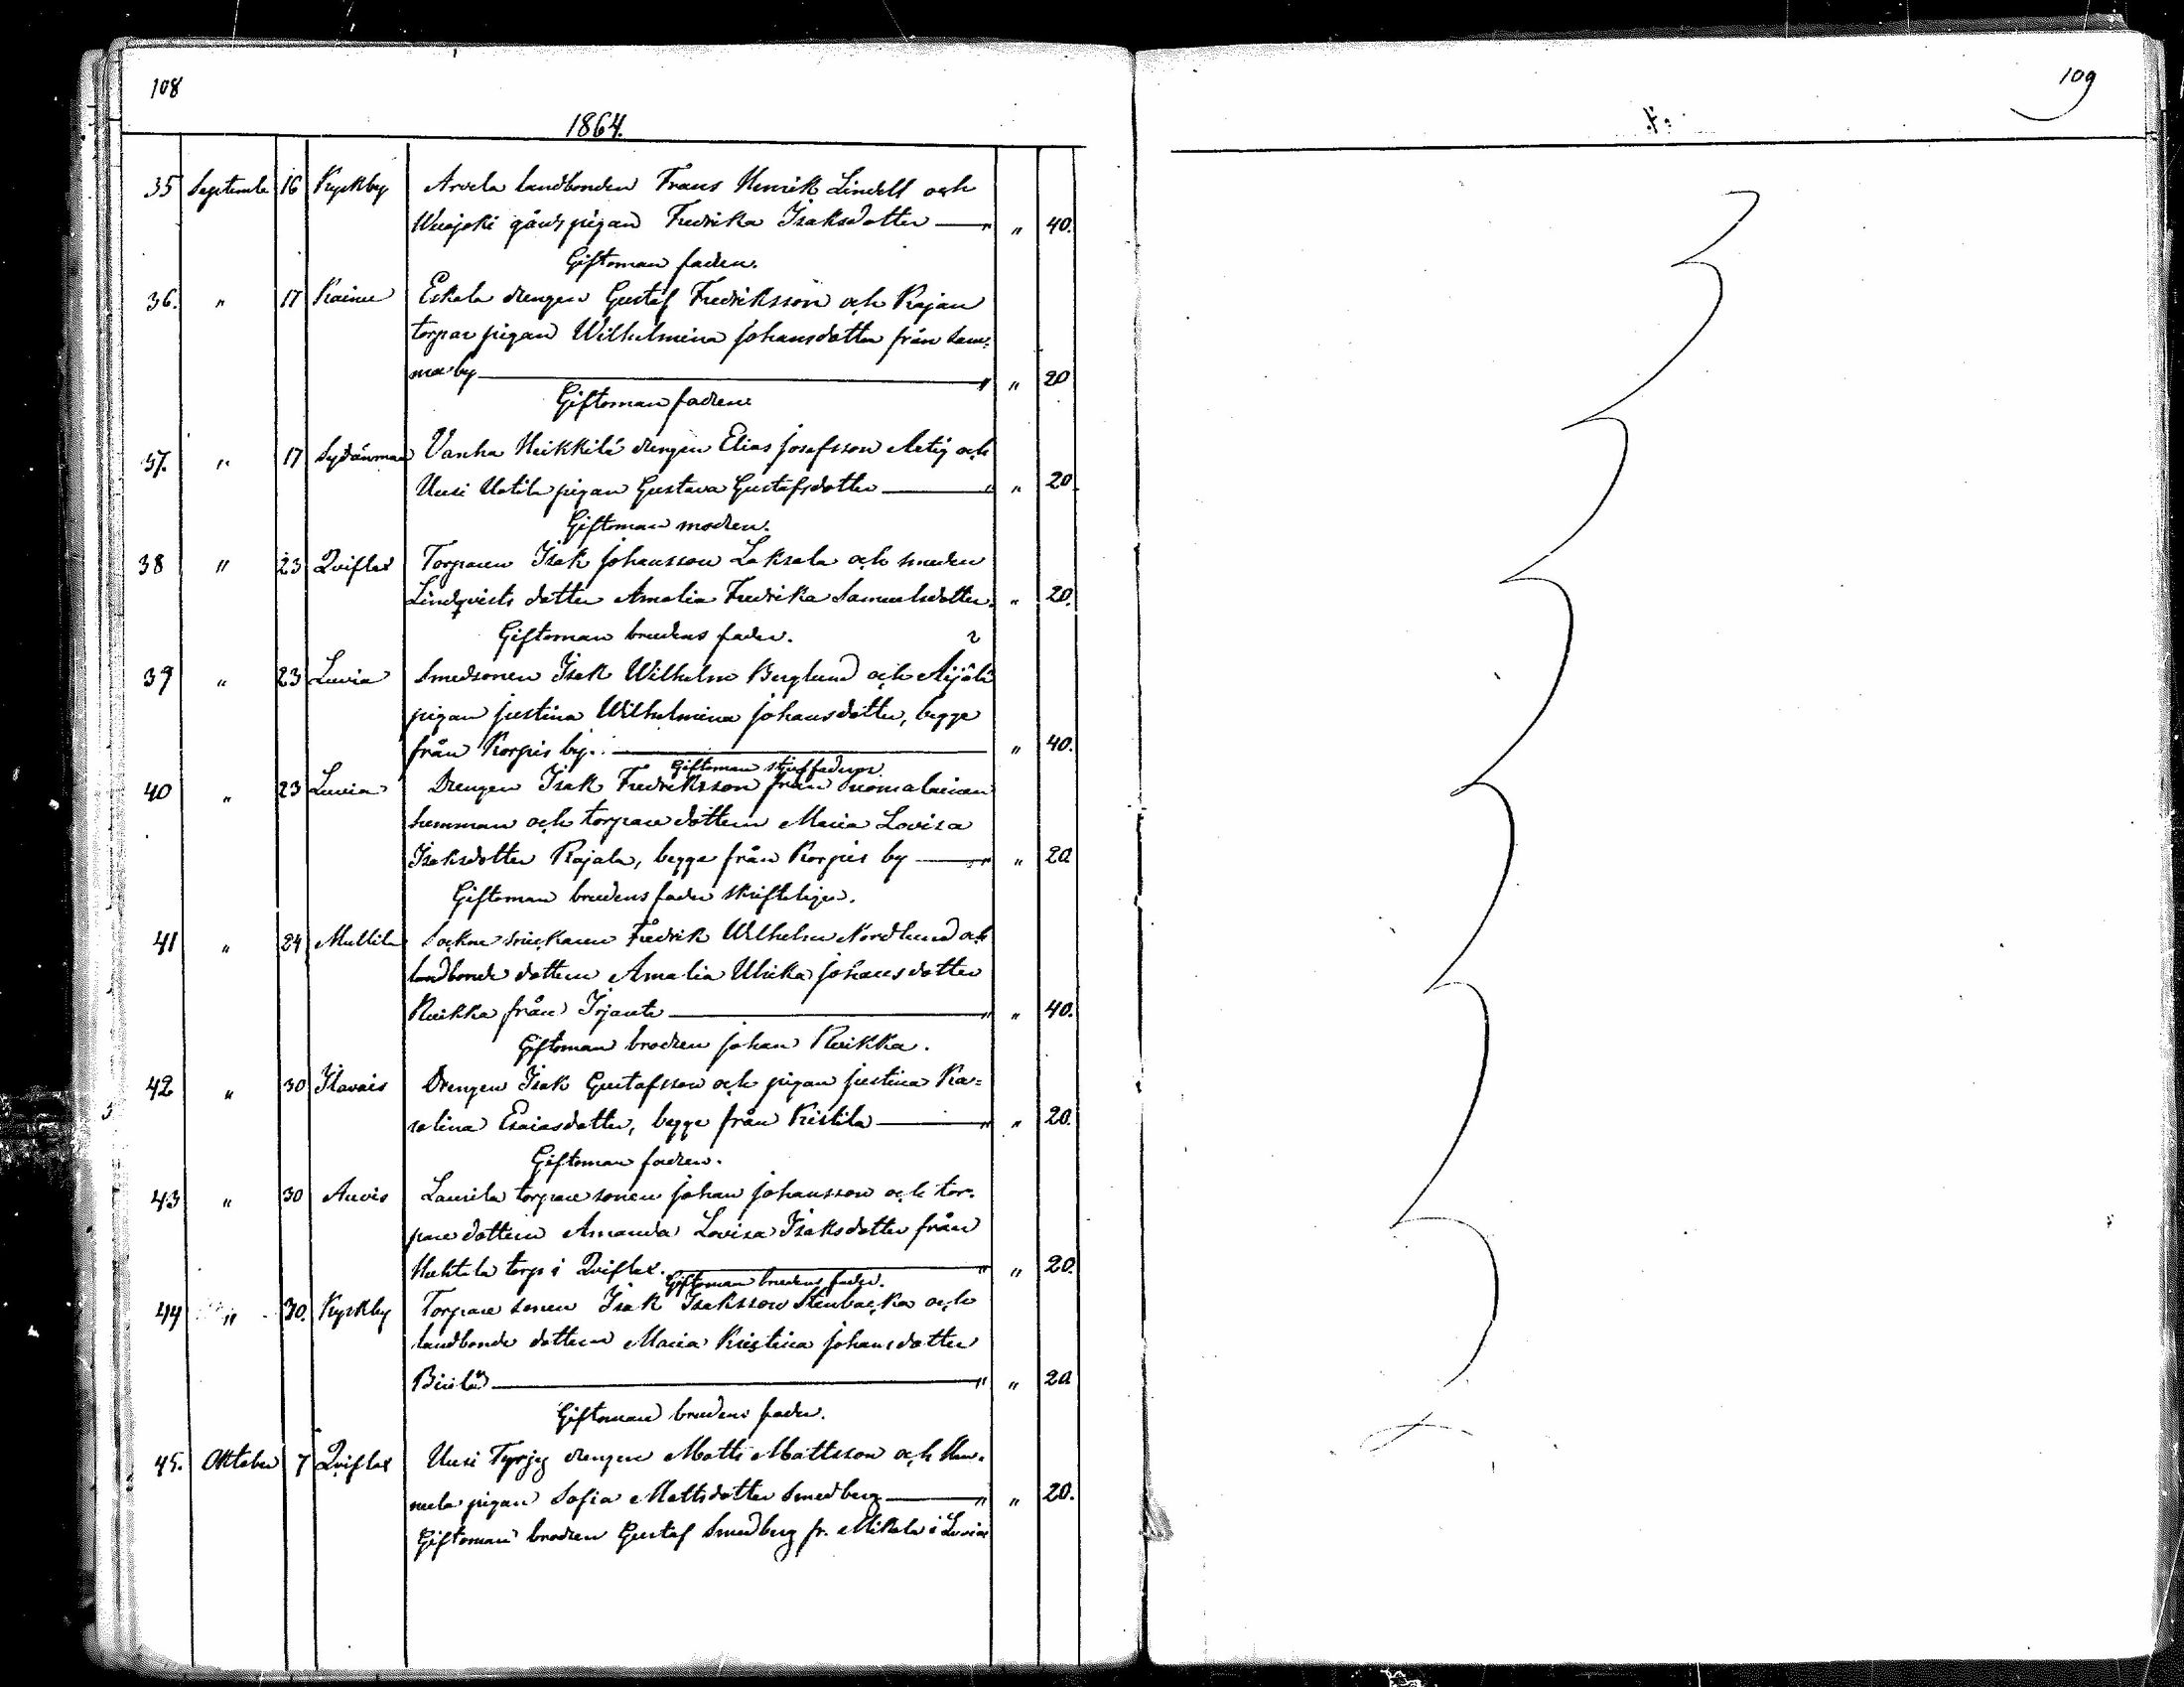 108
1864.
35 September 16 Kyrkby Arvela landbonden Frans Henrik Lindell och
Wuojoki gårds pigan Fredrika Isaksdotter — " " 40.
Giftoman fadren.
36. " 17 Kainu Eskola drengen Gustaf Fredriksson och Rajan
torpare pigan Wilhelmina Johansdotter från sam=
ma by — " " 20
Giftoman fadren
37. " 17 Sydänmaa Vanha Heikkilä drengen Elias Josefsson och
Uusi Uotila pigan Gustava Gustafsdotter — " " 20
Giftoman modren.
38 " 23 Qviflax Torparen Isak Johansson Laksala och smeden
Lindqvists dotter Amalia Fredrika Samuelsdotter. " 20.
Giftoman brudens fader.
39 " 23 Luvia Smedsonen Isak Wilhelm Berglund och Äijälä
pigan Justina Wilhelmina Johansdotter, begge
från Korpis by. — " 40.
Giftoman stjuffadren
40 " 23 Luvia Drengen Isak Fredriksson från Suomalainen
hemman och torpare dottern Maria Lovisa
Isaksdotter Rajala, begge från Korpis by — " " 20
Giftoman brudens fader skrifteligen.
41 " 24 Mullila Sockne snickaren Fredrik Wilhelm Nordlund och
landbonde dottern Amalia Ulrika Johansdotter
Ruikka från Irjante — " " 40.
Giftoman brodren Johan Ruikka.
42 " 30 Ilavais Drengen Isak Gustafsson och pigan Justina Ka=
rolina Esaiasdotter, begge från Kristila — " " 20.
Giftoman fadren.
43 " 30 Auvis Laurila torpare sonen Johan Johansson och tor=
pare dottern Amanda Lovisa Isaksdotter från
Huhtala torp i Qviflax. — " " 20.
Giftoman brudens fader.
44 " 30. Kyrkby Torpare sonen Isak Isaksson Stenbacka och
landbonde dottern Maria Kristina Johansdotter
— " " 20
Giftoman brudens fader.
45. Oktober 7 Qviflax Uusi Tyrjy drengen Matts Mattsson och
pigan Sofia Mattsdotter Smedberg — " " 20.
Giftoman brodren Gustaf Smedberg fr. Mikola i Luvia
109